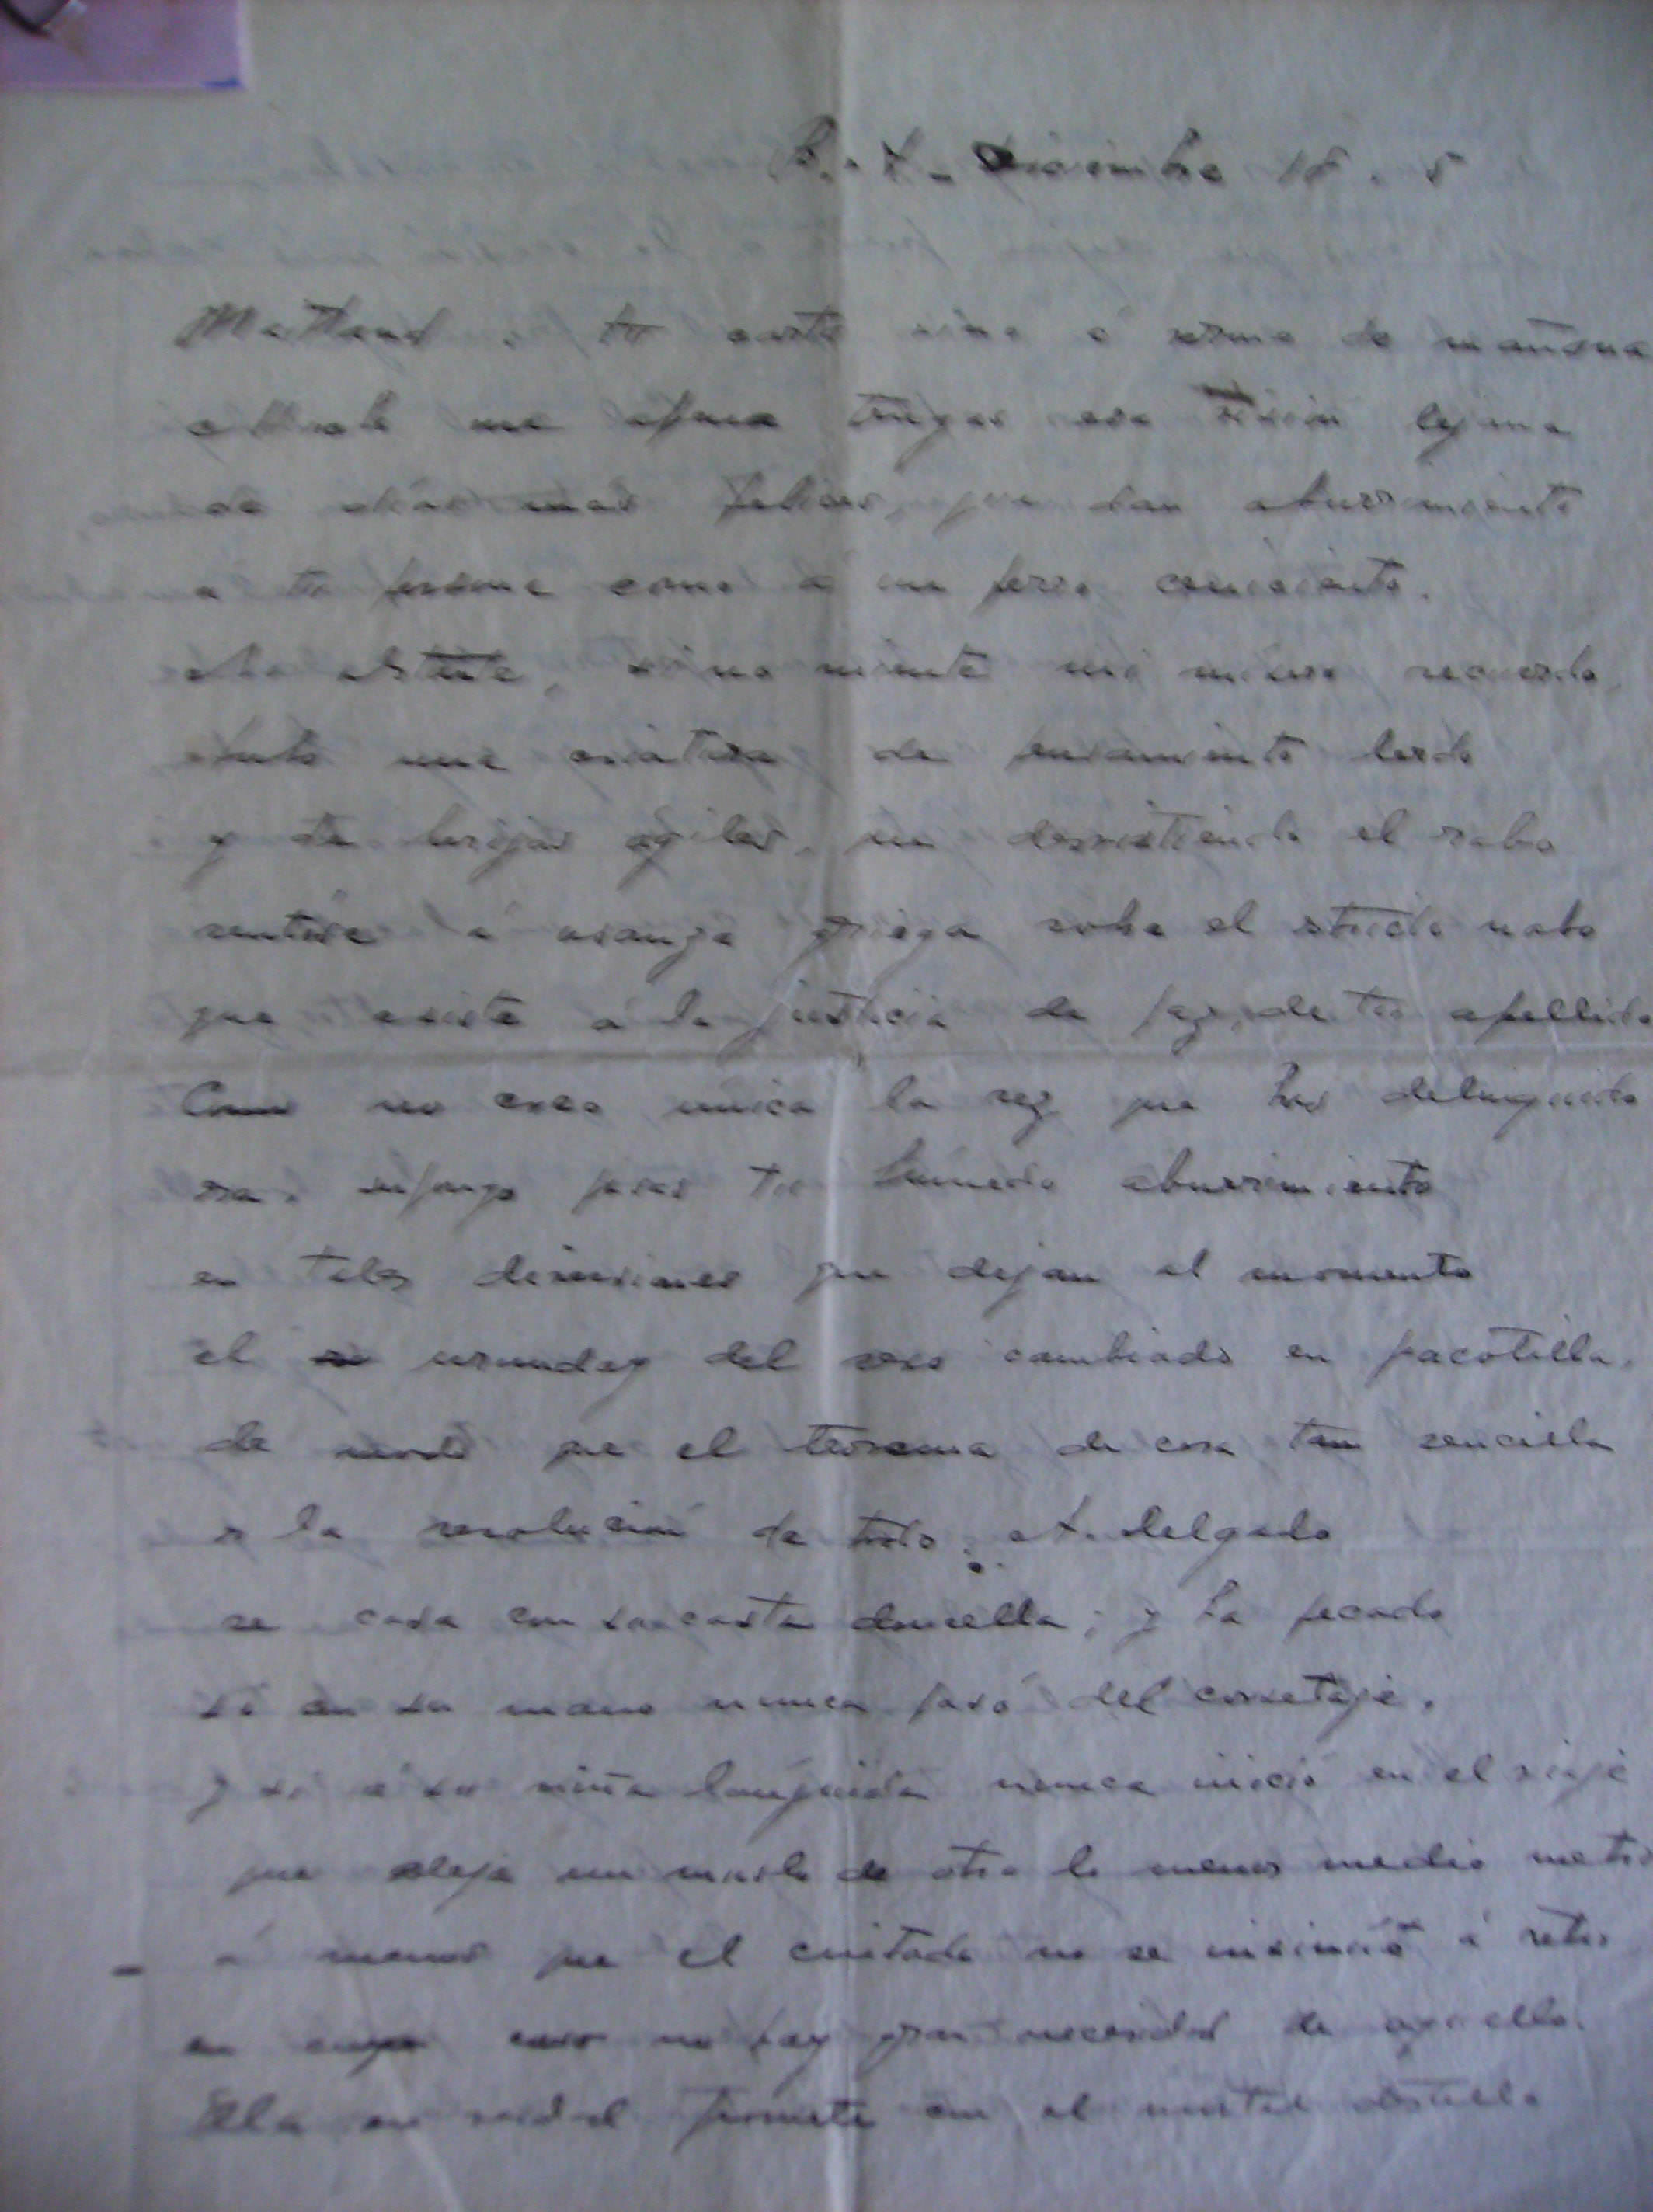 Diciembre 18 . 5
Maitland . tu carta vino á verme de mañana
me apena tengas esa visión lejana
de días mas felices, que dan aburrimiento
á tu persona como á un perro ceniciento.
obstante, si no miente mi mismo recuerdo
una criatura de pensamiento lerdo
y de agiles, que desvistiendo el rabo
sentóse á usanza griega sobre el nabo
que asiste á la justicia de paz, de tu apellido
Como no creo única la vez que has delinquido
supongo pasas tu húmedo aburrimiento
en tales diversiones que dejan al momento
el urunday del sexo cambiado en pacotilla,
de modo que el teorema de cosa tan sencilla
es la resolución de todo: A. Delgado
se casa con su casta doncella; y ha pecado
si en su mano nunca pasó del corretaje,
y si á su niña lánguida nunca inició en el viaje
que aleja un muslo de otro lo menos medio metro
á menos que el cuitado no se insinúe á retro
en cuyo caso no hay gran necesidad de aquello.
Ella en verdad permite con el